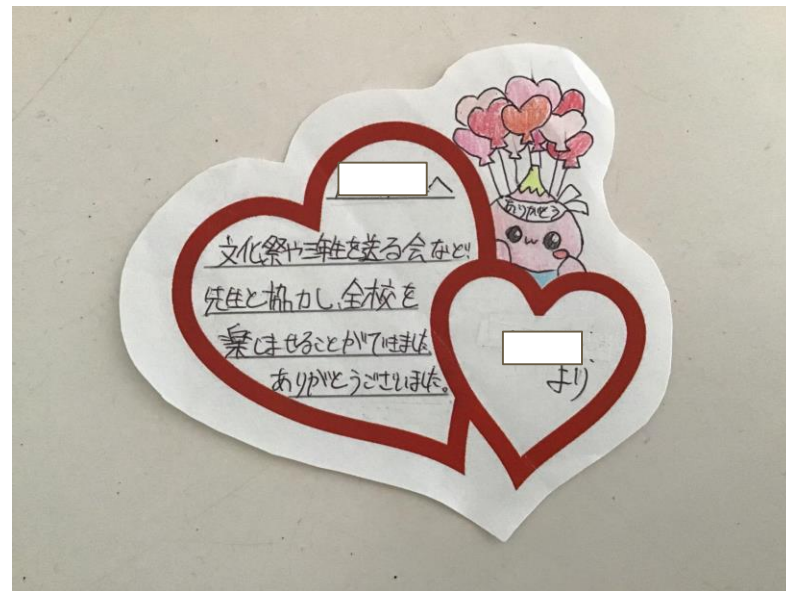 へ
文化祭や三年生を送る会など、
先生と協力し、全校を
楽しませることができました。
ありがとうございました。
ありがとう
より